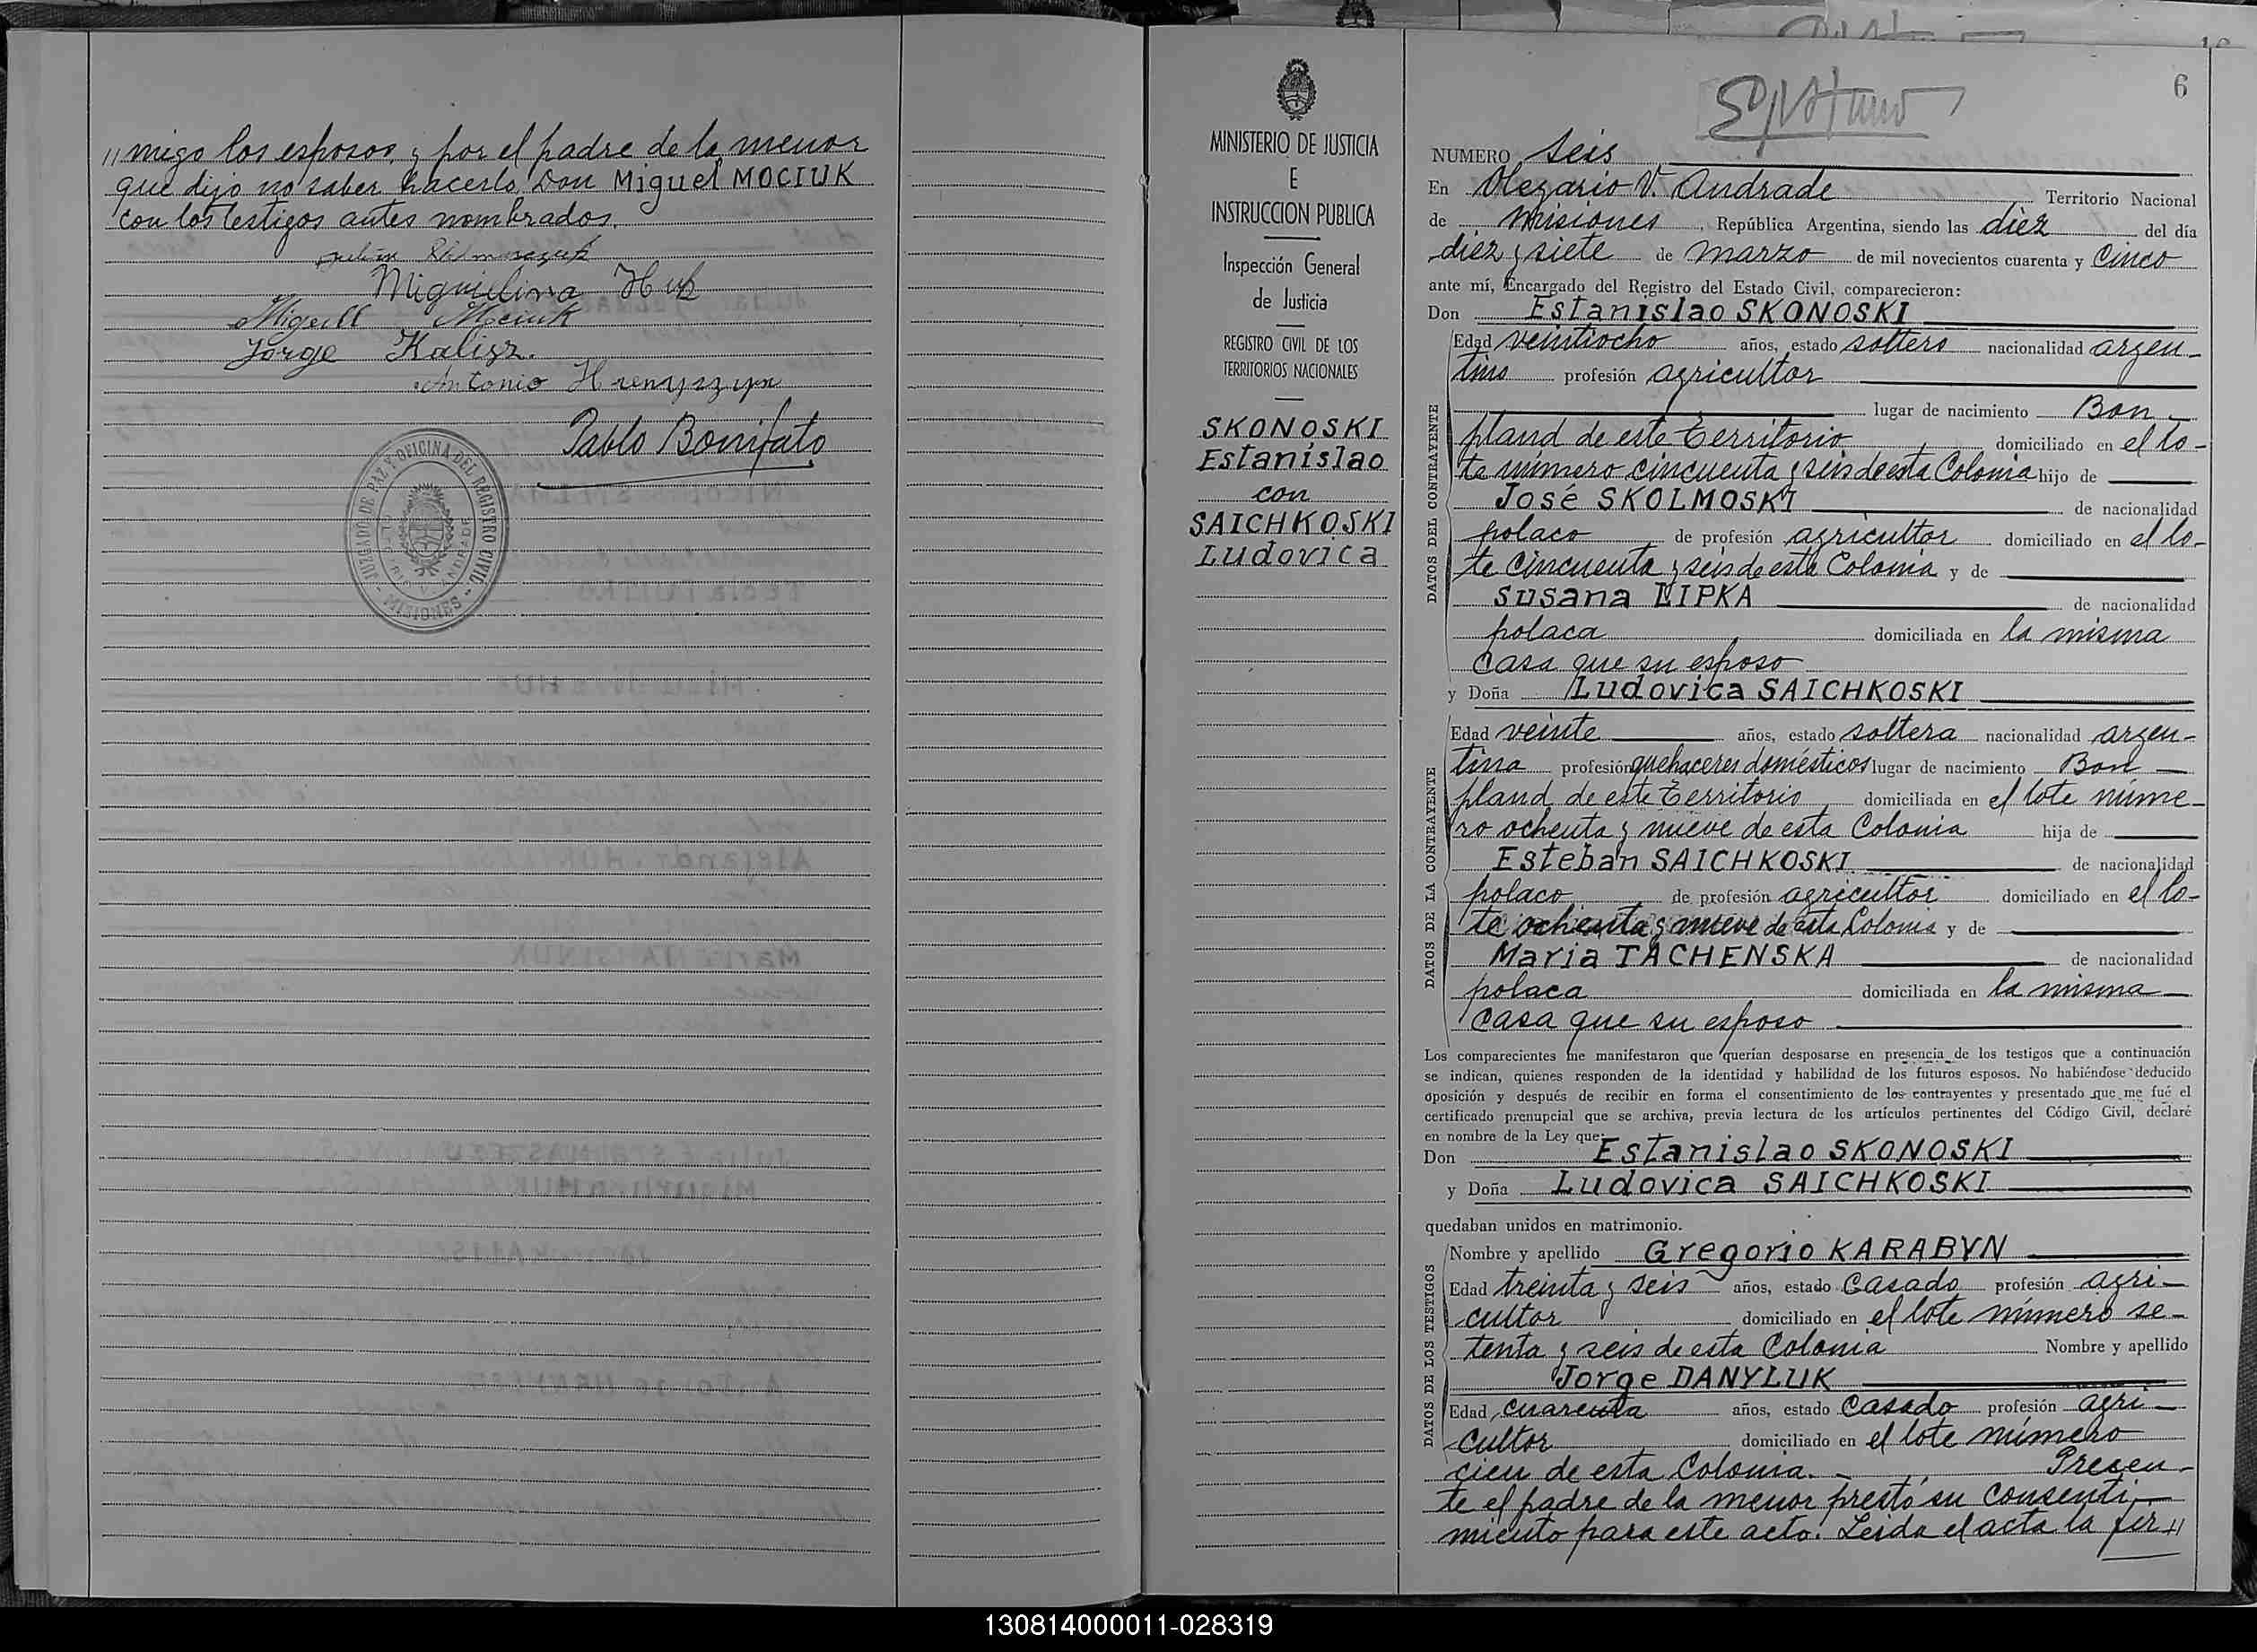 // migo los esposos, y por el padre de la menor
que dijo no saber hacerlo, Don Miguel MOCIUK
con los testigos antes nombrados.
Miguelina Huk
Miguel Mociuk
Jorge Kalisz.
Antonio Hrenyszyn
Pablo Bonifato
JUZGADO DE PAZ Y OFICINA DEL REGISTRO CIVIL
OLEGARIO V. ANDRADE
- MISIONES -
MINISTERIO DE JUSTICIA
E
INSTRUCCION PUBLICA
Inspección General
de Justicia
REGISTRO CIVIL DE LOS
TERRITORIOS NACIONALES
SKONOSKI
Estanislao
con
SAICHKOSKI
Ludovica
6
NUMERO seis
En Olegario V. Andrade Territorio Nacional
de Misiones, República Argentina, siendo las diez del día
diez y siete de marzo de mil novecientos cuarenta y cinco
ante mí, Encargado del Registro del Estado Civil, comparecieron:
Don Estanislao SKONOSKI
DATOS DEL CONTRAYENTE
Edad veintiocho años, estado soltero nacionalidad argen-
tino profesión agricultor
lugar de nacimiento Bon-
pland de este Territorio domiciliado en el lo-
te número cincuenta y seis de esta Colonia hijo de
José SKOLMOSKI de nacionalidad
polaco de profesión agricultor domiciliado en el lo-
te cincuenta y seis de esta Colonia y de
Susana LIPKA de nacionalidad
polaca domiciliada en la misma
casa que su esposo
y Doña Ludovica SAICHKOSKI
DATOS DE LA CONTRAYENTE
Edad veinte años, estado soltera nacionalidad argen-
tina profesión quehaceres domésticos lugar de nacimiento Bon-
pland de este Territorio domiciliada en el lote núme-
ro ochenta y nueve de esta Colonia hija de
Esteban SAICHKOSKI de nacionalidad
polaco de profesión agricultor domiciliado en el lo-
te ochenta y nueve de esta Colonia y de
Maria TACHENSKA de nacionalidad
polaca domiciliada en la misma
casa que su esposo
Los comparecientes me manifestaron que querían desposarse en presencia de los testigos que a continuación
se indican, quienes responden de la identidad y habilidad de los futuros esposos. No habiéndose deducido
oposición y después de recibir en forma el consentimiento de los contrayentes y presentado que me fué el
certificado prenupcial que se archiva, previa lectura de los artículos pertinentes del Código Civil, declaré
en nombre de la Ley que:
Don Estanislao SKONOSKI
y Doña Ludovica SAICHKOSKI
quedaban unidos en matrimonio.
DATOS DE LOS TESTIGOS
Nombre y apellido Gregorio KARABYN
Edad treinta y seis años, estado casado profesión agri-
cultor domiciliado en el lote número se-
tenta y seis de esta Colonia Nombre y apellido
Jorge DANYLUK
Edad cuarenta años, estado casado profesión agri-
cultor domiciliado en el lote número
cien de esta Colonia.- Presen-
te el padre de la menor prestó su consenti-
miento para este acto. Leida el acta la fir //
130814000011-028319